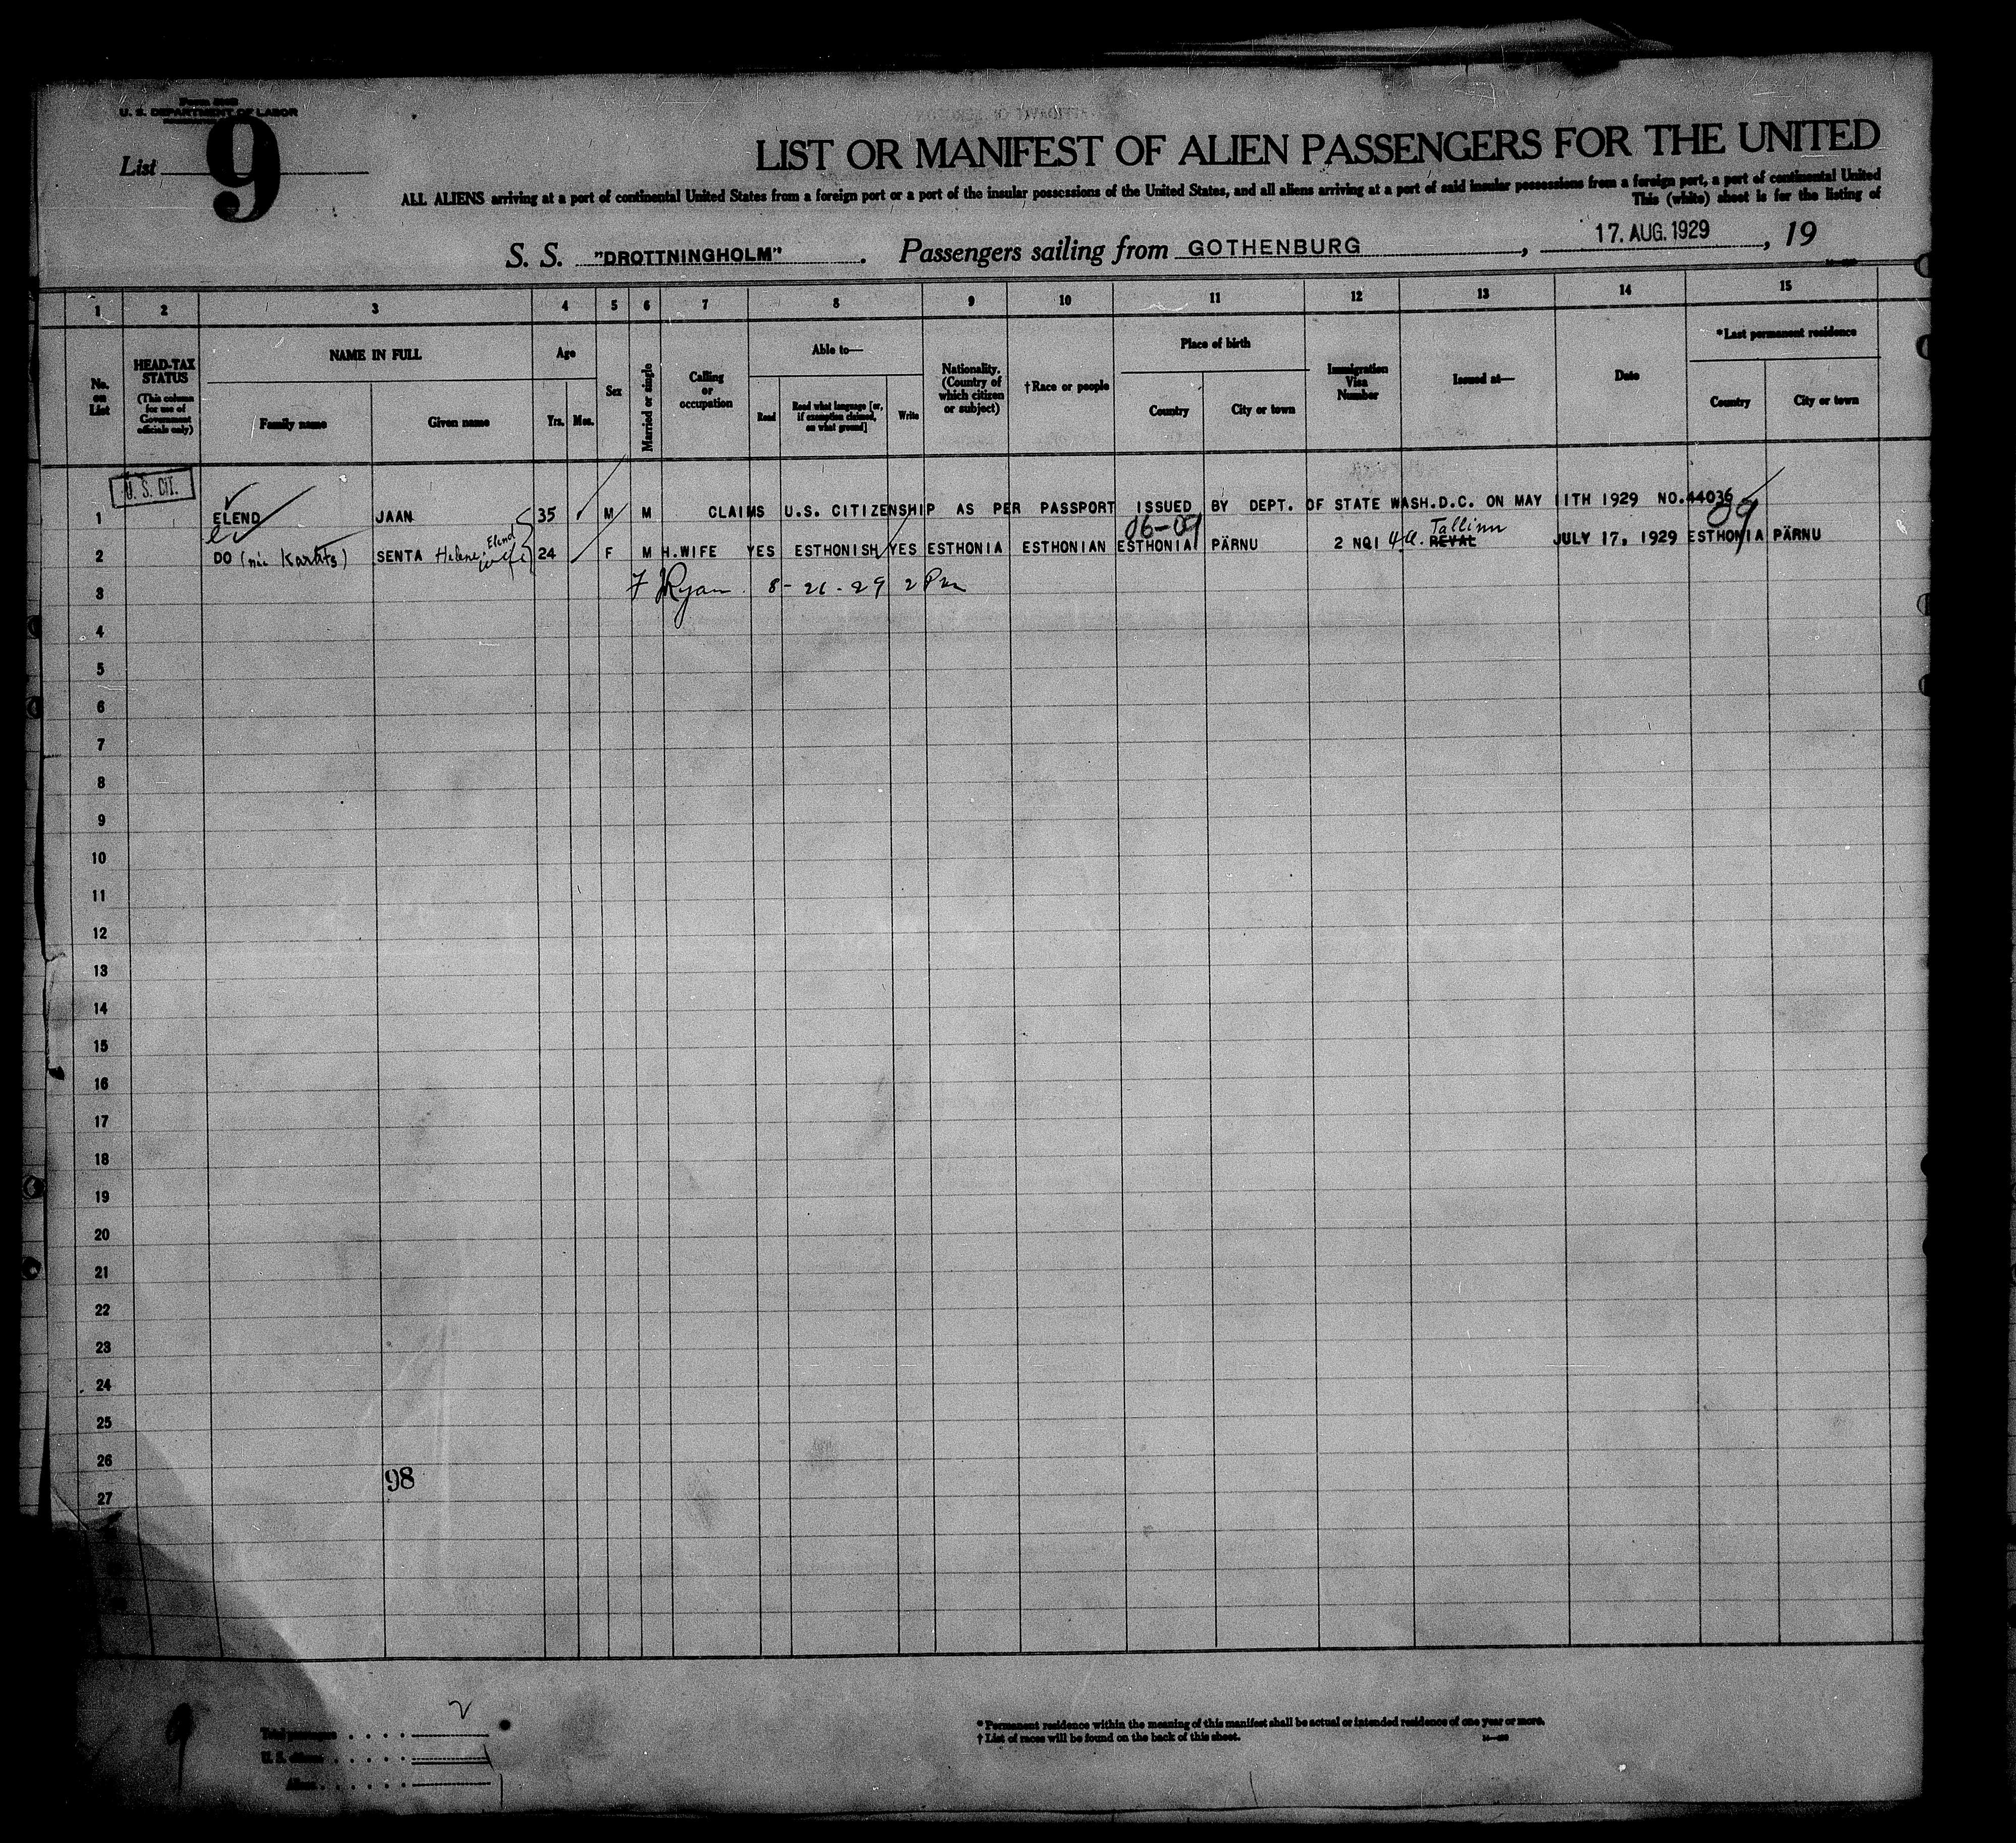 U. S. DEPARTMENT OF LABOR
List 9
LIST OR MANIFEST OF ALIEN PASSENGERS FOR THE UNITED
ALL ALIENS arriving at a port of continental United States from a foreign port or a port of the insular possessions of the United States, and all aliens arriving at a port of said insular possessions from a foreign port, a port of continental United
This (white) sheet is for the listing of
S. S. "DROTTNINGHOLM". Passengers sailing from GOTHENBURG, 17. AUG. 1929, 19
1 2 3 4 5 6 7 8 9 10 11 12 13 14 15
No. on List
HEAD-TAX STATUS
(This column for use of Government officials only)
NAME IN FULL
Family name
Given name
Age
Yrs. Mos.
Sex
Married or single
Calling or occupation
Able to—
Read
Read what language [or, if exemption claimed, on what ground]
Write
Nationality. (Country of which citizen or subject)
†Race or people
Place of birth
Country
City or town
Immigration Visa Number
Issued at—
Date
*Last permanent residence
Country
City or town
U. S. CIT.
1 ELEND JAAN 35 M M CLAIMS U.S. CITIZENSHIP AS PER PASSPORT ISSUED BY DEPT. OF STATE WASH.D.C. ON MAY 11TH 1929 NO.44036
06-09 Tallinn 09
2 DO SENTA Helene Elend wife 24 F M H.WIFE YES ESTHONISH YES ESTHONIA ESTHONIAN ESTHONIA PÄRNU 2 NQI 4a. REVAL JULY 17, 1929 ESTHONIA PÄRNU
3 F J Ryan 8-26-29 2 Pm
4
5
6
7
8
9
10
11
12
13
14
15
16
17
18
19
20
21
22
23
24
25
26
98
27
9
Total passengers 2
U. S. citizens
Aliens
* Permanent residence within the meaning of this manifest shall be actual or intended residence of one year or more.
† List of races will be found on the back of this sheet.